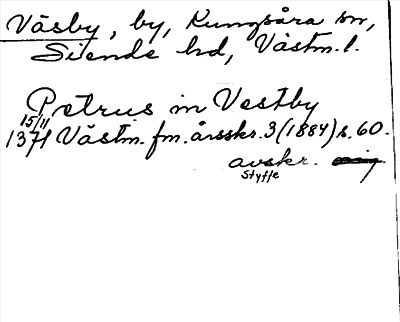 Väsby, by, Kungsåra sn,
Siende hd, Västm. l.
Petrus in Vestby
15/11
1371 Västm. fm. årsskr. 3 (1884) s. 60.
avskr.
Styffe